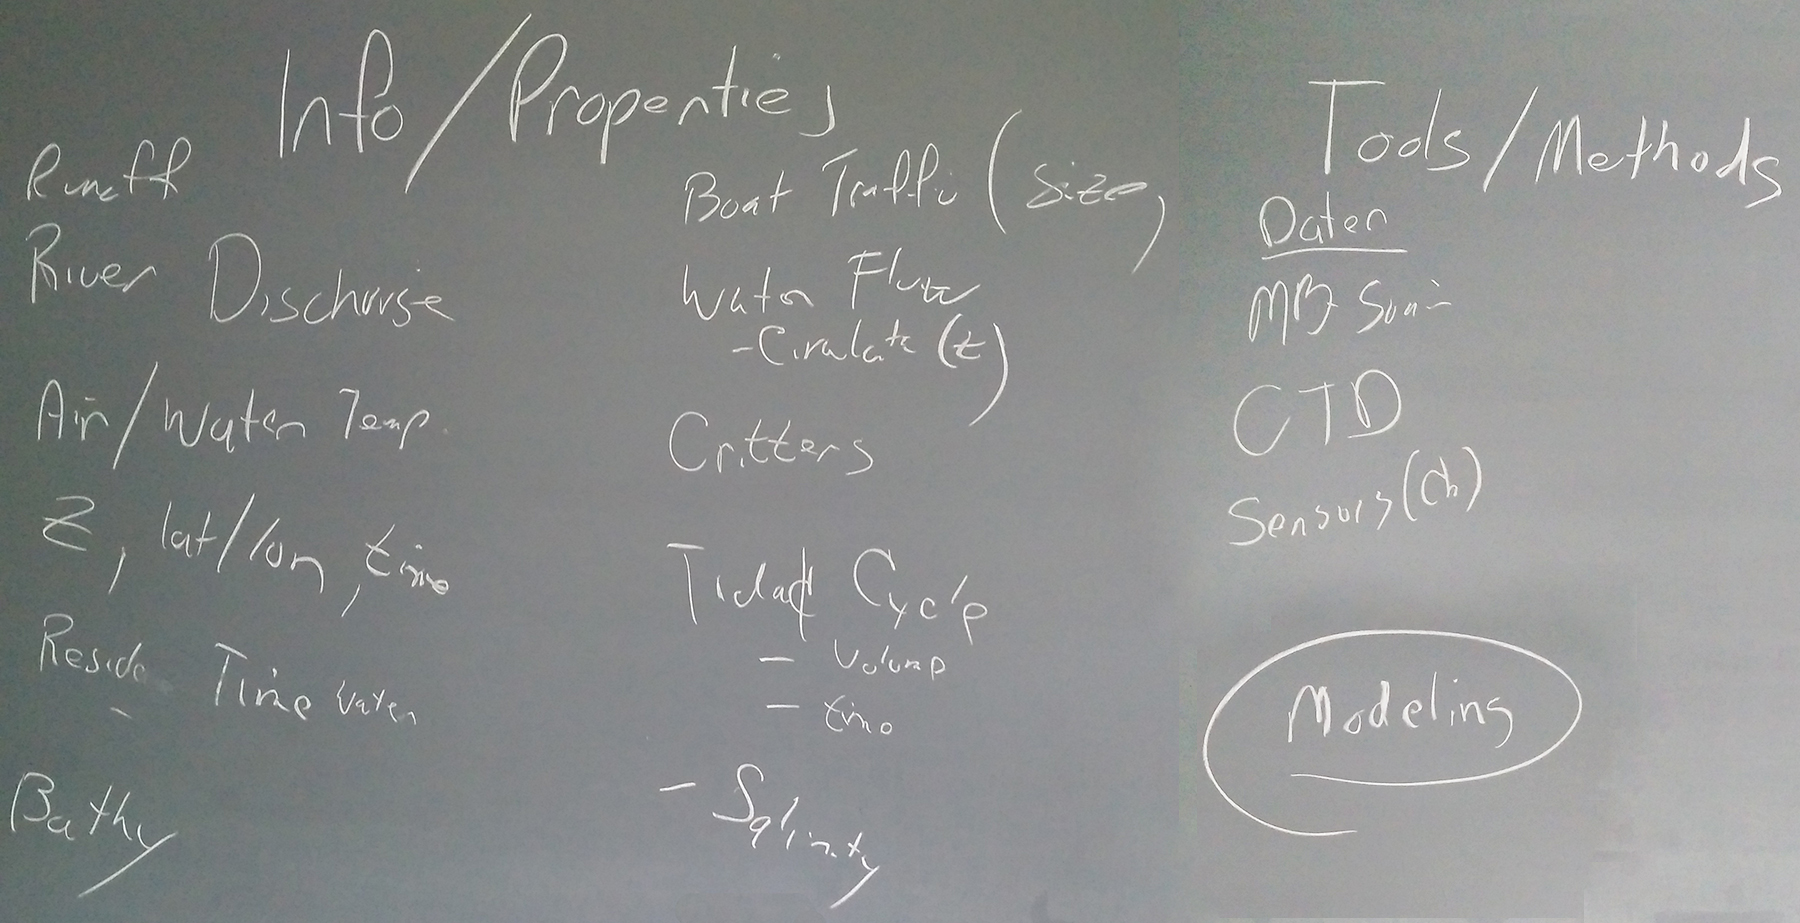 Info/Properties
Runoff
River Discharge
Air/Water Temp.
Z, lat/lon, time
Reside Time water
Bathy
Boat Traffic (size)
Water Flux
- Circulate (t)
Critters
Tidal Cycle
- Volume
- time
- Salinity
Tools/Methods
MB Sonar
CTD
Sensors (Ch)
Modeling